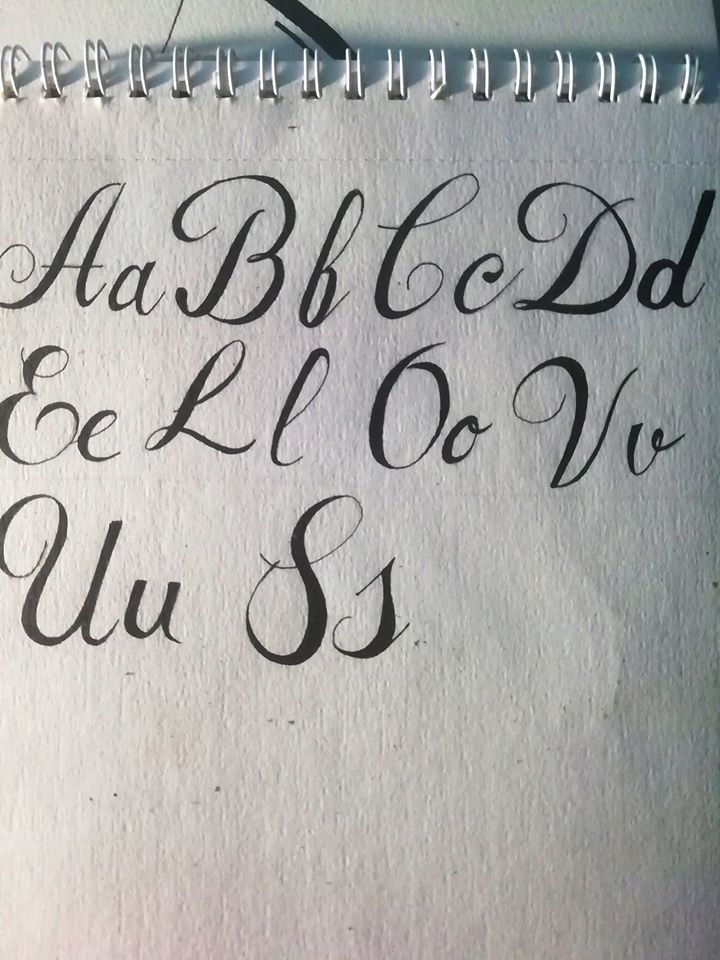 Aa Bb Cc Dd
Ee Ll Oo Vv
Uu Ss